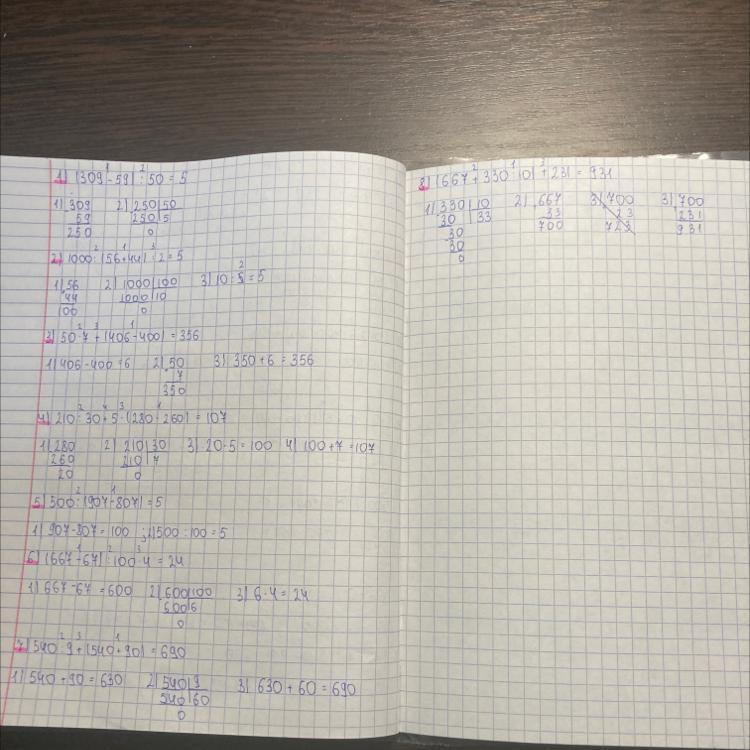 1) (309-59) : 50 = 5
1) 309 2) 250 50
59 250 5
250 0
2) 1000 : (56+44) : 2 = 5
1) 56 2) 1000 100 3) 10 : 2 = 5
44 1000 10
100 0
3) 50·7+(406-400) = 356
1) 406-400=6 2) 50 3) 350+6=356
7
350
4) 210:30+5·(280-260) = 107
1) 280 2) 210 30 3) 20·5=100 4) 100+7=107
260 210 7
20 0
5) 500 : (907-807) = 5
1) 907-807=100 ; 2) 500:100=5
6) (667-67) : 100·4=24
1) 667-67=600 2) 600 100 3) 6·4=24
600 6
0
7) 540:9+(540+90) = 690
1) 540+90=630 2) 540 9 3) 630+60=690
540 60
0
8) (667+330:10)+231=931
1) 330 10 2) 667 3) 700 3) 700
30 33 33 23 231
30 700 723 931
30
0